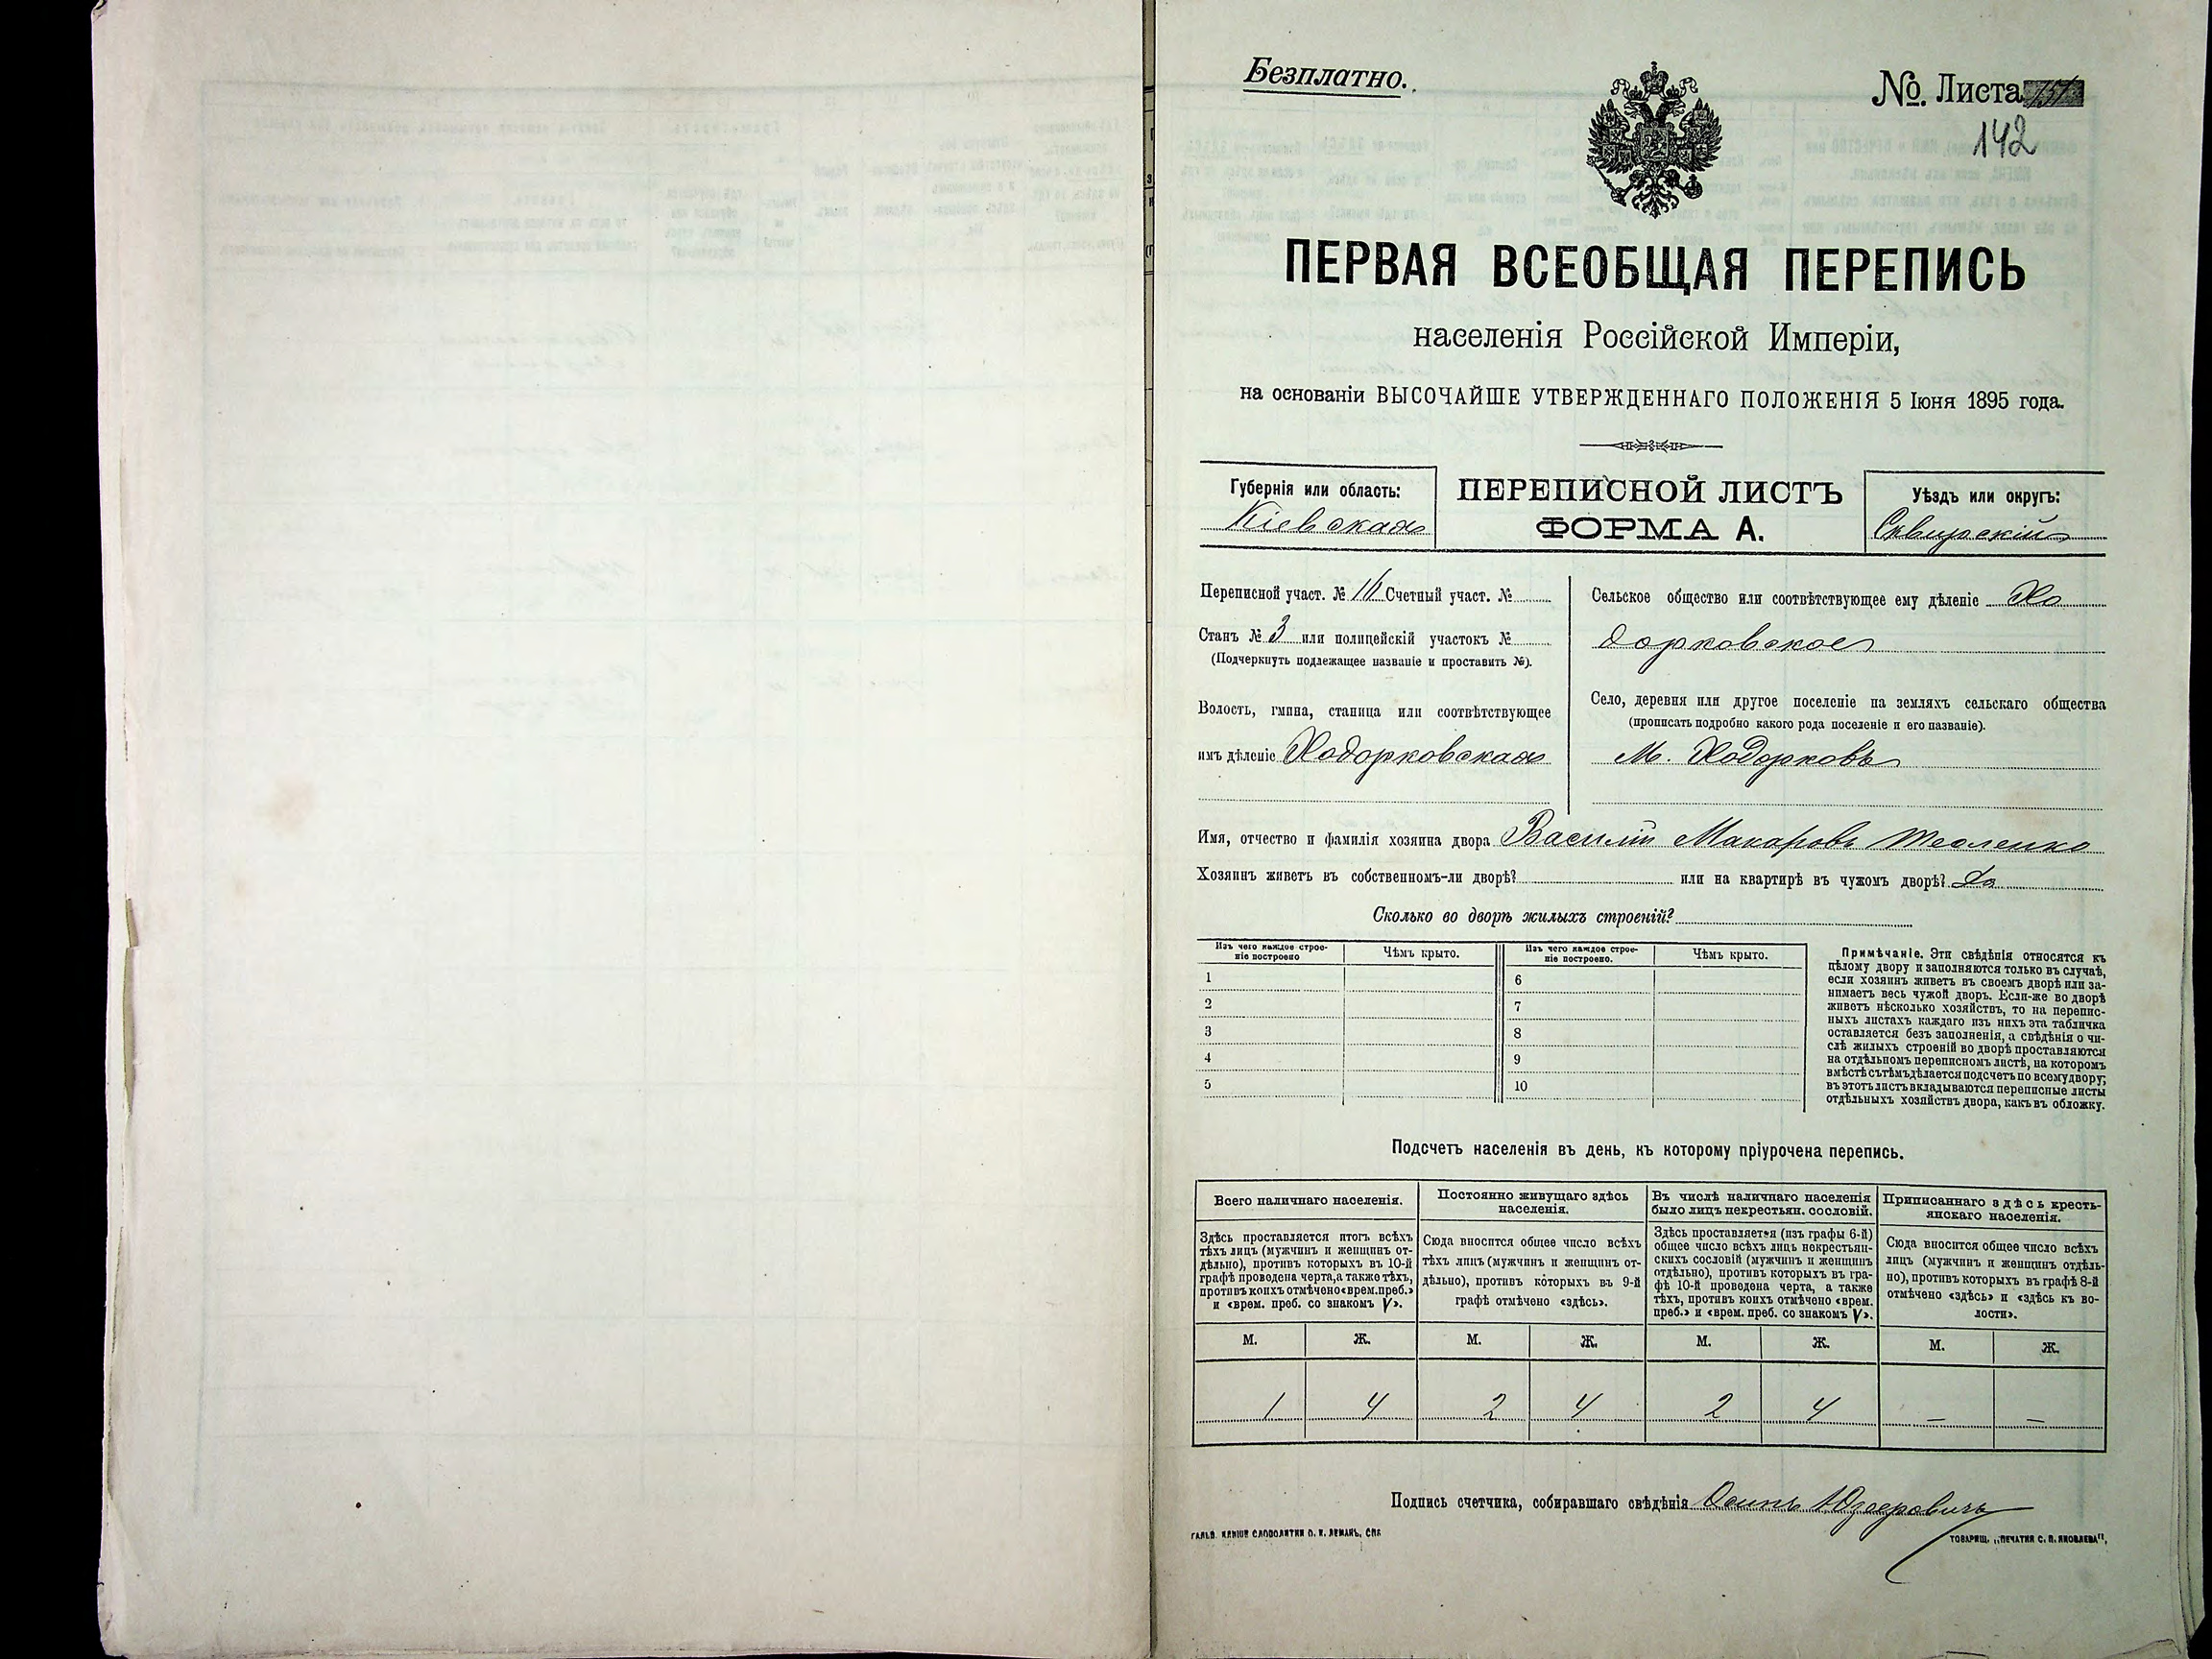 Безплатно.
№. Листа
142
ПЕРВАЯ ВСЕОБЩАЯ ПЕРЕПИСЬ
населенія Россійской Имперіи,
на основаніи ВЫСОЧАЙШЕ УТВЕРЖДЕННАГО ПОЛОЖЕНІЯ 5 Іюня 1895 года.
Губернія или область:
Кіевская
ПЕРЕПИСНОЙ ЛИСТЪ
ФОРМА А.
Уѣздъ или округъ:
Сквирскій
Переписной участ. № Счетный участ. №
Станъ № 3 или полицейскій участокъ №
(Подчеркнуть подлежащее названіе и проставить №).
Волость, гмина, станица или соотвѣтствующее
имъ дѣленіе Ходорковская
Сельское общество или соотвѣтствующее ему дѣленіе Хо
дорковское
Село, деревня или другое поселеніе на земляхъ сельскаго общества
(прописать подробно какого рода поселеніе и его названіе).
М. Ходорковъ
Имя, отчество и фамилія хозяина двора Василій Макаровъ
Хозяинъ живетъ въ собственномъ-ли дворѣ? или на квартирѣ въ чужомъ дворѣ? Да
Сколько во дворѣ жилыхъ строеній?
Изъ чего каждое строе-
ніе построено
Чѣмъ крыто.
Изъ чего каждое строе-
ніе построено.
Чѣмъ крыто.
1
2
3
4
5
6
7
8
9
10
Примѣчаніе. Эти свѣдѣнія относятся къ
цѣлому двору и заполняются только въ случаѣ,
если хозяинъ живетъ въ своемъ дворѣ или за-
нимаетъ весь чужой дворъ. Если-же во дворѣ
живетъ нѣсколько хозяйствъ, то на перепис-
ныхъ листахъ каждаго изъ нихъ эта табличка
оставляется безъ заполненія, а свѣдѣнія о чи-
слѣ жилыхъ строеній во дворѣ проставляются
на отдѣльномъ переписномъ листѣ, на которомъ
вмѣстѣ съ тѣмъ дѣлается подсчетъ по всему двору;
въ этотъ листъ вкладываются переписные листы
отдѣльныхъ хозяйствъ двора, какъ въ обложку.
Подсчетъ населенія въ день, къ которому пріурочена перепись.
Всего наличнаго населенія.
Здѣсь проставляется итогъ всѣхъ
тѣхъ лицъ (мужчинъ и женщинъ от-
дѣльно), противъ которыхъ въ 10-й
графѣ проведена черта, а также тѣхъ,
противъ коихъ отмѣчено «врем. преб.»
и «врем. преб. со знакомъ V».
Постоянно живущаго здѣсь
населенія.
Сюда вносится общее число всѣхъ
тѣхъ лицъ (мужчинъ и женщинъ от-
дѣльно), противъ которыхъ въ 9-й
графѣ отмѣчено «здѣсь».
Въ числѣ наличнаго населенія
было лицъ некрестьян. сословій.
Здѣсь проставляется (изъ графы 6-й)
общее число всѣхъ лицъ некрестьян-
скихъ сословій (мужчинъ и женщинъ
отдѣльно), противъ которыхъ въ гра-
фѣ 10-й проведена черта, а также
тѣхъ, противъ коихъ отмѣчено «врем.
преб.» и «врем. преб. со знакомъ V».
Приписаннаго здѣсь кресть-
янскаго населенія.
Сюда вносится общее число всѣхъ
лицъ (мужчинъ и женщинъ отдѣль-
но), противъ которыхъ въ графѣ 8-й
отмѣчено «здѣсь» и «здѣсь къ во-
лости».
М. Ж. М. Ж. М. Ж. М. Ж.
1 4 2 4 2 4 — —
Подпись счетчика, собиравшаго свѣдѣнія Осипъ
ГАЛЬВ. КЛИШЕ СЛОВОЛИТНИ О. И. ЛЕМАНЪ, СПБ
ТОВАРИЩ. „ПЕЧАТНЯ С. П. ЯКОВЛЕВА",